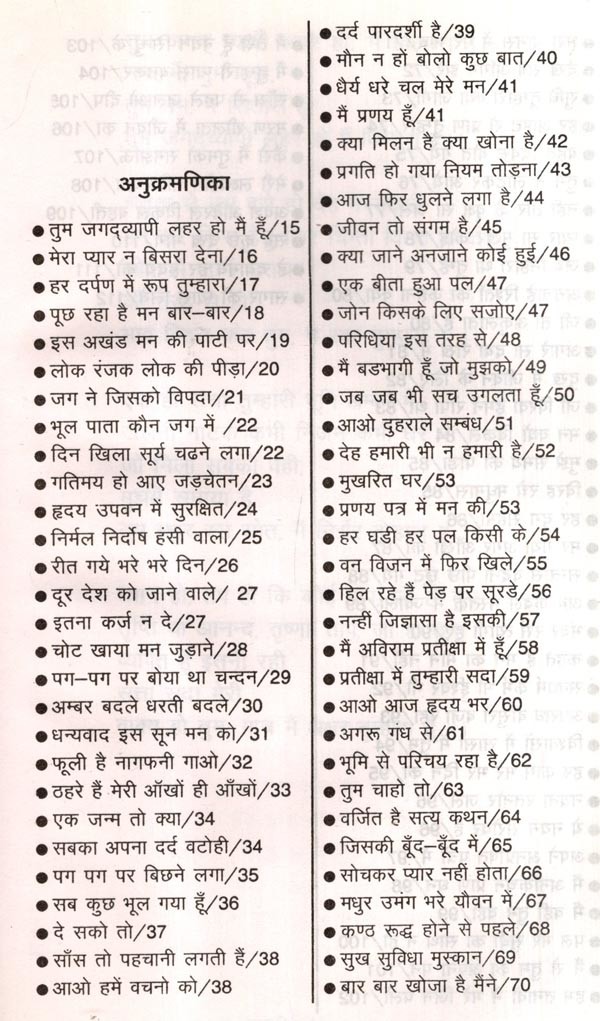 अनुक्रमणिका
● तुम जगद्व्यापी लहर हो मैं हूँ/15
● मेरा प्यार न बिसरा देना/16
● हर दर्पण में रूप तुम्हारा/17
● पूछ रहा है मन बार–बार/18
● इस अखंड मन की पाटी पर/19
● लोक रंजक लोक की पीड़ा/20
● जग ने जिसको विपदा/21
● भूल पाता कौन जग में /22
● दिन खिला सूर्य चढने लगा/22
● गतिमय हो आए जड़चेतन/23
● हृदय उपवन में सुरक्षित/24
● निर्मल निर्दोष हंसी वाला/25
● रीत गये भरे भरे दिन/26
● दूर देश को जाने वाले/ 27
● इतना कर्ज न दे/27
● चोट खाया मन जुड़ाने/28
● पग–पग पर बोया था चन्दन/29
● अम्बर बदले धरती बदले/30
● धन्यवाद इस सून मन को/31
● फूली है नागफनी गाओ/32
● ठहरे हैं मेरी ऑखों ही ऑखों/33
● एक जन्म तो क्या/34
● सबका अपना दर्द वटोही/34
● पग पग पर बिछने लगा/35
● सब कुछ भूल गया हूँ/36
● दे सको तो/37
● साँस तो पहचानी लगती हैं/38
● आओ हमें वचनो को/38
● दर्द पारदर्शी है/39
● मौन न हों बोलो कुछ बात/40
● धैर्य धरे चल मेरे मन/41
● मैं प्रणय हूँ/41
● क्या मिलन है क्या खोना है/42
● प्रगति हो गया नियम तोड़ना/43
● आज फिर धुलने लगा है/44
● जीवन तो संगम है/45
● क्या जाने अनजाने कोई हुई/46
● एक बीता हुआ पल/47
● जोन किसके लिए सजोए/47
● परिधिया इस तरह से/48
● मैं बडभागी हूँ जो मुझको/49
● जब जब भी सच उगलता हूँ/50
● आओ दुहराले सम्बंध/51
● देह हमारी भी न हमारी है/52
● मुखरित घर/53
● प्रणय पत्र में मन की/53
● हर घडी हर पल किसी के/54
● वन विजन में फिर खिले/55
● हिल रहे हैं पेड़ पर सूरडे/56
● नन्हीं जिज्ञासा है इसकी/57
● मैं अविराम प्रतीक्षा में हूँ/58
● प्रतीक्षा में तुम्हारी सदा/59
● आओ आज हृदय भर/60
● अगरू गंध से/61
● भूमि से परिचय रहा है/62
● तुम चाहो तो/63
● वर्जित है सत्य कथन/64
● जिसकी बूँद–बूँद में/65
● सोचकर प्यार नहीं होता/66
● मधुर उमंग भरे यौवन में/67
● कण्ठ रूद्ध होने से पहले/68
● सुख सुविधा मुस्कान/69
● बार बार खोजा है मैंने/70